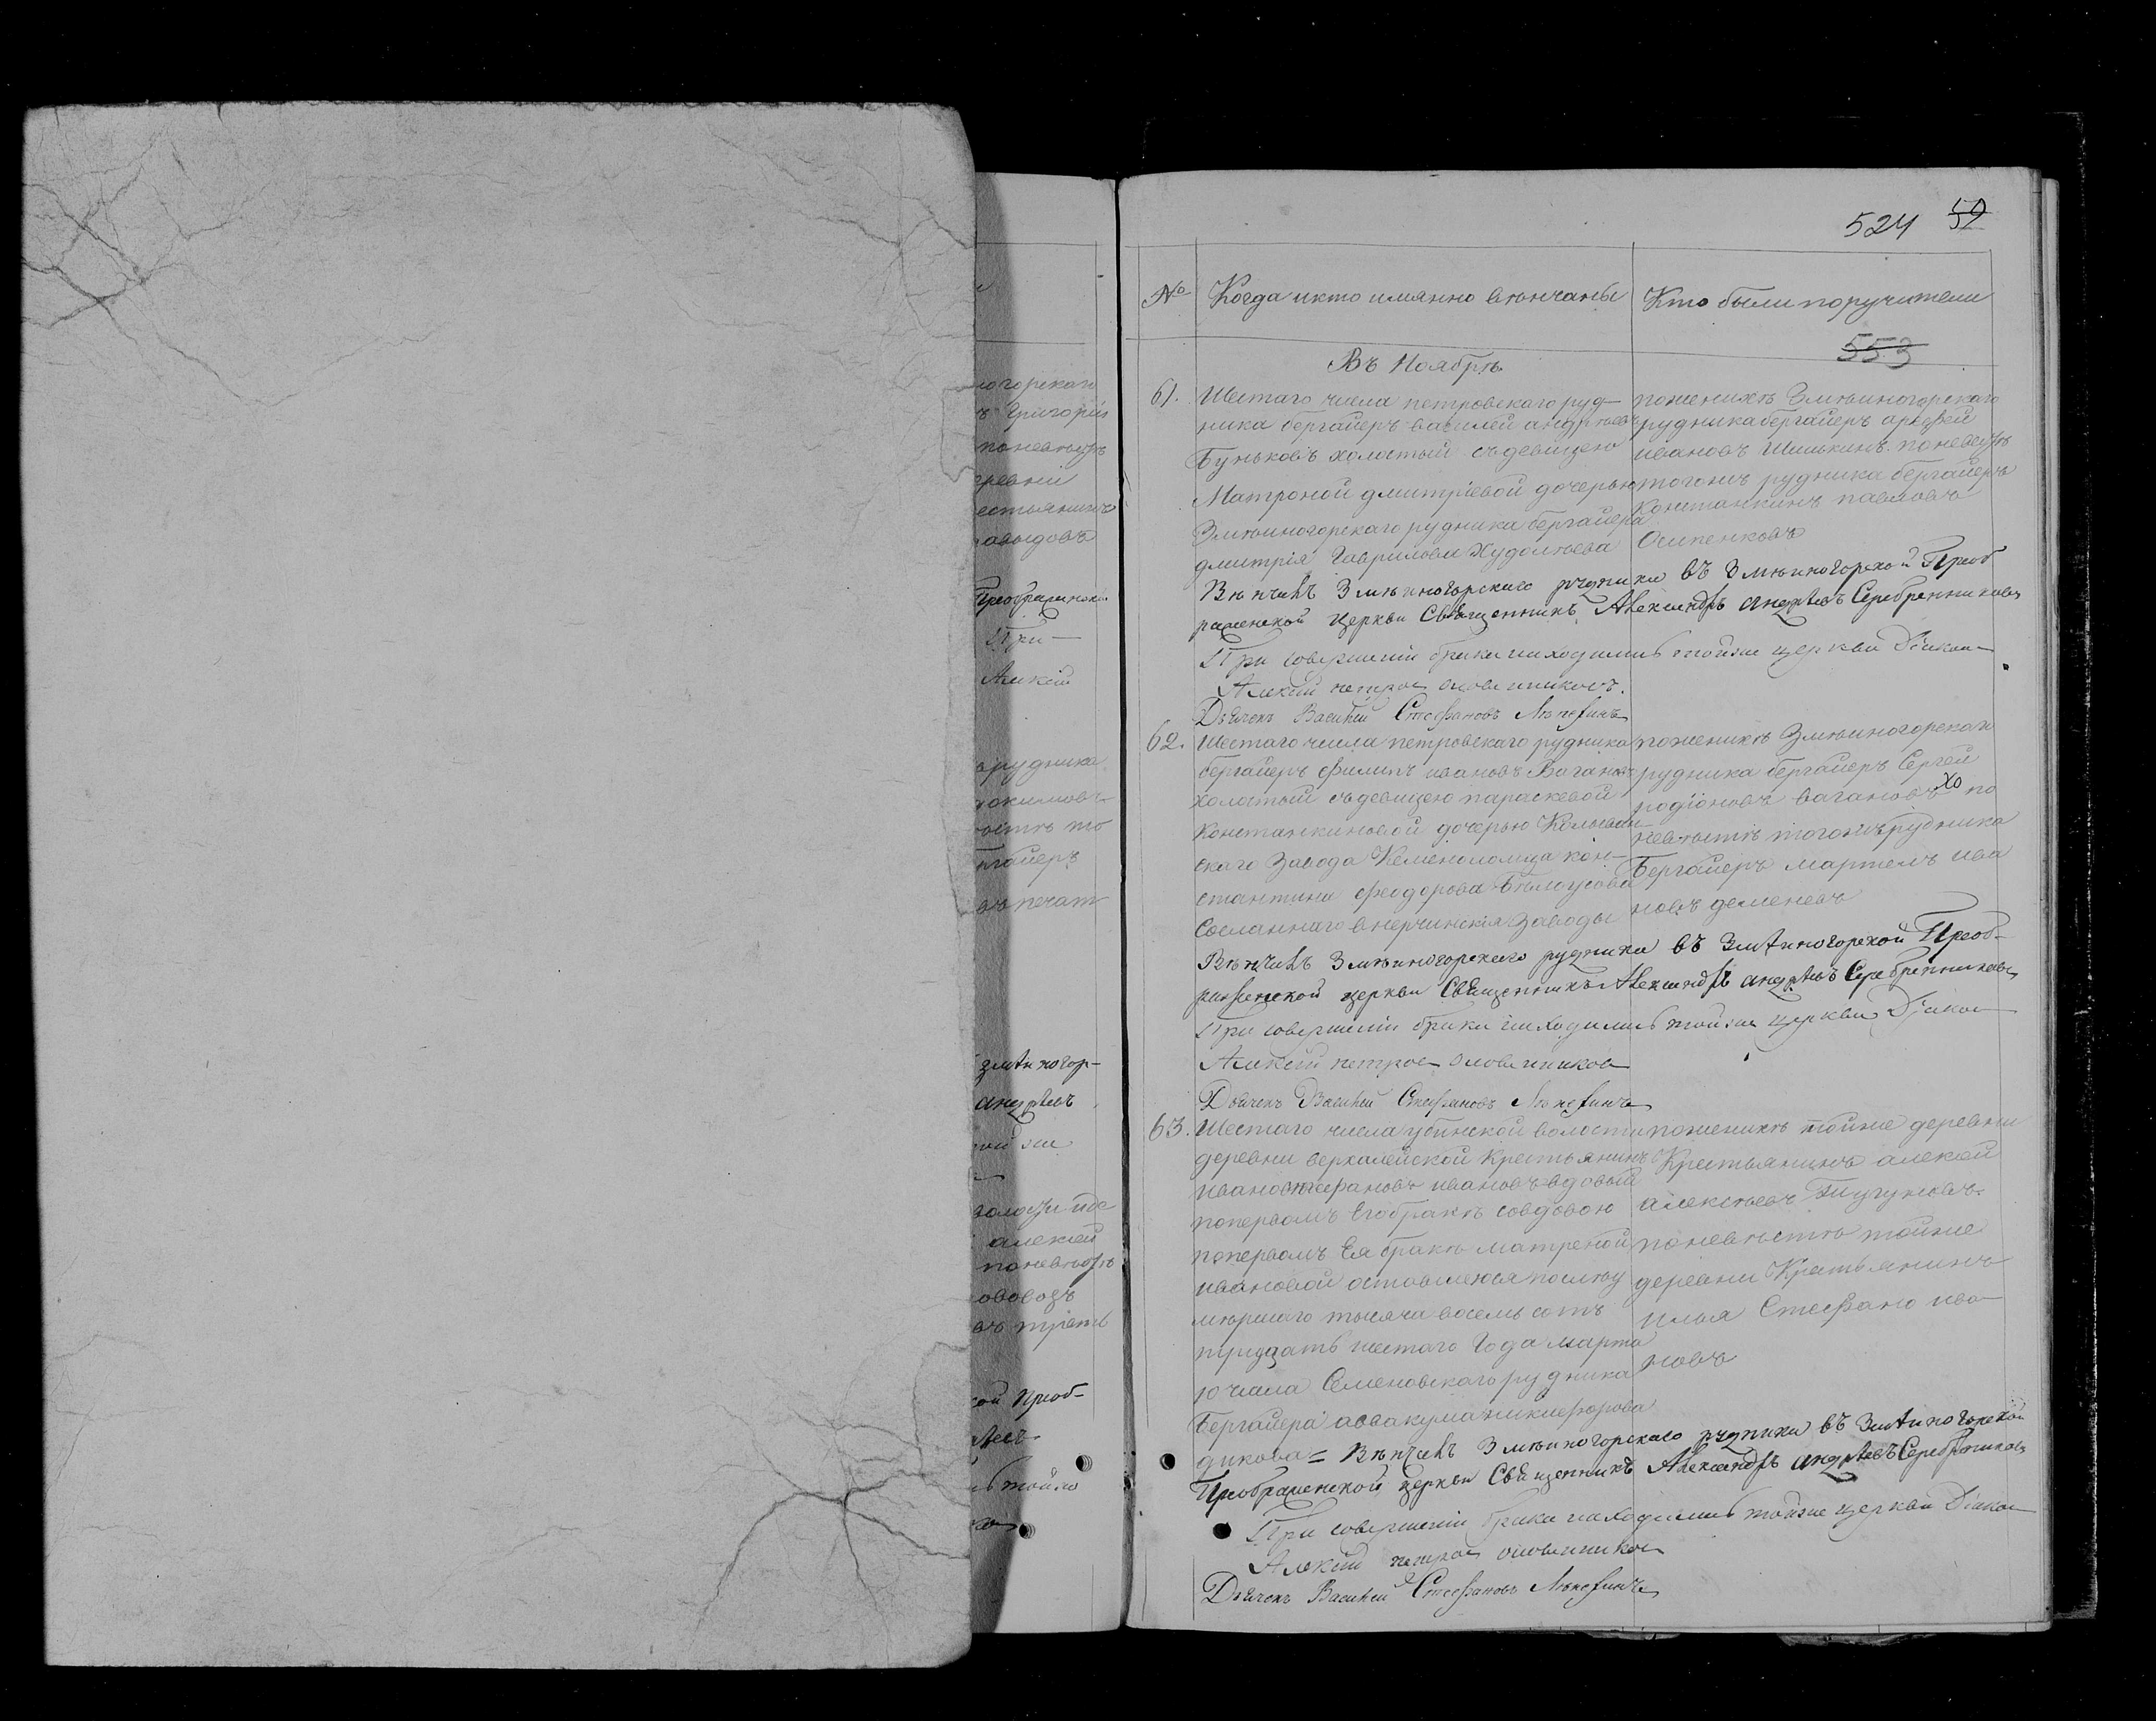 524 59
№ Когда икто имянно вѣнчаны Кто были поручители
553
Въ Ноябрѣ
61. Шестаго числа петровскаго руд-
ника бергайеръ василей андрѣевъ
Буньковъ холостый съдевицею
Матроной дмитріевой дочерью
Змѣиногорскаго рудника бергайера
дмитрія Гаврилова Худолѣева
поженихѣ Змѣиногорскаго
рудника бергайеръ
ивановъ Шишкинъ. поневестѣ
тогожъ рудника бергайеръ
Константинъ павловъ
Осипенковъ
Вѣнчилъ Змѣиногорскаго рудника въ Змѣиногорской Преоб
раженской церкви Священникъ Александръ андрѣевъ Серебренниковъ
При совершеніи брака находились тойже церкви Діакон
Алексій петров
Дьячекъ Василей Стефановъ
62. Шестаго числа петровскаго рудника
бергайеръ Филипъ ивановъ Вагановъ
холостый съдевицею параскевой
Константиновой дочерью Колыван-
скаго Завода Каменоломца кон-
стантина феодорова Бѣлоусова
Сосланнаго внерчинскія Заводы
поженихѣ Змѣиногорскаго
рудника бергайеръ Сергей
родіоновъ вагановъ по
невѣстѣ тогожъ рудника
Бергайеръ мартемъ ива
новъ деменевъ
Вѣнчилъ Змѣиногорскаго рудника въ Змѣиногорской Преоб-
раженской церкви Священникъ Александръ андрѣевъ Серебренниковъ
При совершеніи брака находились тойже церкви Діакон
Алексій петров
Дьячекъ Василей Стефановъ
63. Шестаго числа убинской волости
деревни верхалейской Крестьянинъ
иванъ стефановъ ивановъ вдовый
попервомъ Егобракѣ совдовою
попервомъ Ея бракѣ матреной
ивановой оставшеюся послѣу
мѣршаго тысяча восемь сотъ
тридцать шестаго Года марта
10 числа Семеновскаго рудника
Бергайера аввакума никифорова
дикова =
поженихѣ тойже деревни
Крестьянинъ алексей
алексѣевъ
поневѣстѣ тойже
деревни Крестьянинъ
илья Стефано ива
новъ
Вѣнчилъ Змѣиногорскаго рудника въ Змѣиногорской
Преображенской церкви Священникъ Александръ андрѣевъ Серебренниковъ
При совершеніи брака находились тойже церкви Діакон
Алексій петров
Дьячекъ Василей Стефановъ